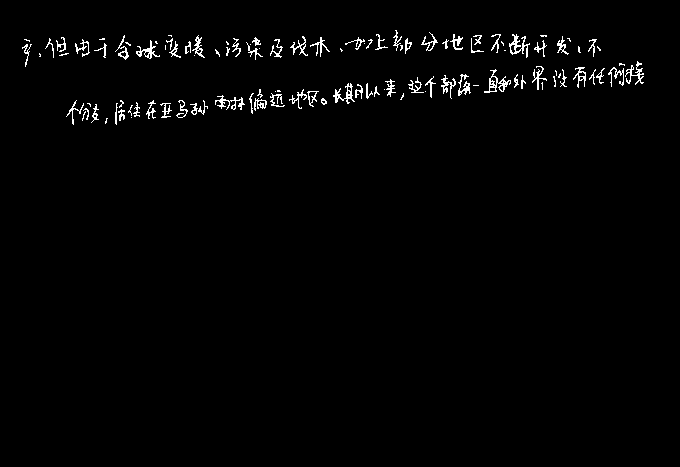 享,但由于全球变暖、污染及伐木,加上部分地区不断开发,不
个分支,居住在亚马孙雨林偏远地区。长期以来,这个部落一直和外界没有任何接